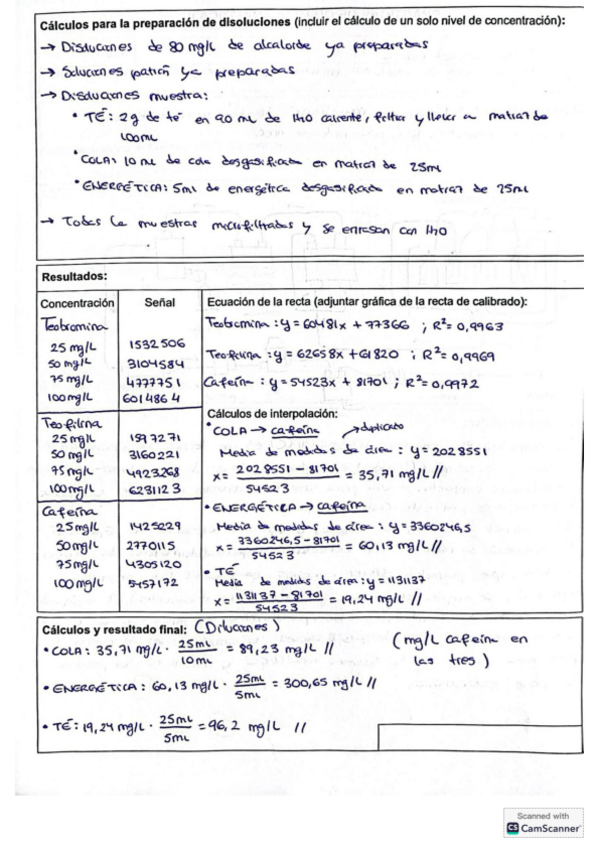 Cálculos para la preparación de disoluciones (incluir el cálculo de un solo nivel de concentración):
→ Disoluciones de 80 mg/L de alcaloide ya preparadas
→ Soluciones patrón ya preparadas
→ Disoluciones muestra:
• TÉ: 2g de té en 90 mL de H2O caliente, filtrar y llevar a matraz de
100mL
• COLA: 10 mL de cola desgasificada en matraz de 25mL
• ENERGÉTICA: 5mL de energética desgasificada en matraz de 25mL
→ Todas las muestras microfiltradas y se enrasan con H2O
Resultados:
Concentración Señal Ecuación de la recta (adjuntar gráfica de la recta de calibrado):
Teobromina
25 mg/L 1532506
50 mg/L 3104584
75 mg/L 4777751
100mg/L 6014864
Teofilina
25mg/L 1597271
50mg/L 3160221
75mg/L 4923268
100mg/L 6231123
Cafeína
25mg/L 1425029
50mg/L 2770115
75mg/L 4305120
100 mg/L 5457172
Teobromina: y = 60481x + 77366 ; R²= 0,9963
Teofilina : y = 62658x + 61820 ; R²= 0,9969
Cafeína : y = 54523x + 81701 ; R²= 0,9972
Cálculos de interpolación:
• COLA → cafeína → duplicato
Media de medidas de área : y = 2028551
x = 2028551 - 81701 / 54523 = 35,71 mg/L //
• ENERGÉTICA → cafeína
Media de medidas de área : y = 3360246,5
x = 3360246,5 - 81701 / 54523 = 60,13 mg/L //
• TÉ
Media de medidas de área : y = 1131137
x = 1131137 - 81701 / 54523 = 19,24 mg/L //
Cálculos y resultado final: (Diluciones)
• COLA: 35,71 mg/L · 25mL / 10mL = 89,23 mg/L //
(mg/L cafeína en
las tres)
• ENERGÉTICA : 60,13 mg/L · 25mL / 5mL = 300,65 mg/L //
• TÉ : 19,24 mg/L · 25mL / 5mL = 96,2 mg/L //
Scanned with
CS CamScanner